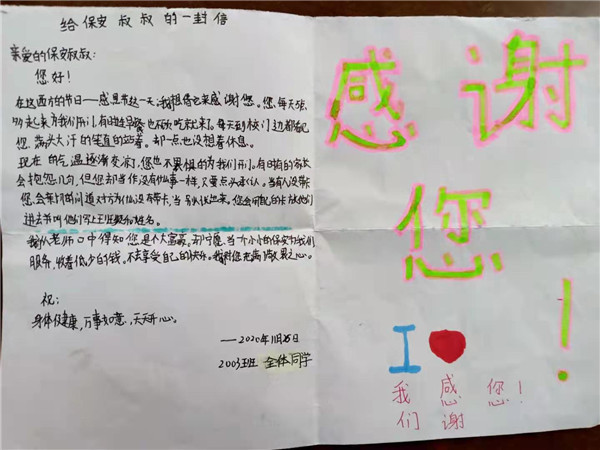 给保安叔叔的一封信
亲爱的保安叔叔:
您好!
在这西方的节日——感恩节这一天,我想借它来感谢您。您每天
起来为我们开门,有时连早 也 吃就来了。每天到校门边都看见
您,满头大汗的笔直的站着,却一点也没想着休息。
现在的气温逐渐变凉了,您也不畏惧的为我们开门。有时有的家长
会抱怨几句,但您却当作没有什么事一样,只是点头承认。当有人没带
您,会亲切的问道对方为什么没带卡,当
进去并叫他们写上班级和姓名。
我从老师口中得知您是个大富豪,却宁愿当个小小的保安为我们
服务,收着低少的钱,不去享受自己的快乐。我对您充满了敬畏之心。
祝:
身体健康,万事如意,天天开心。
——2020年11月26日
2003班 全体同学
感谢
您!
I
我感您!
们谢